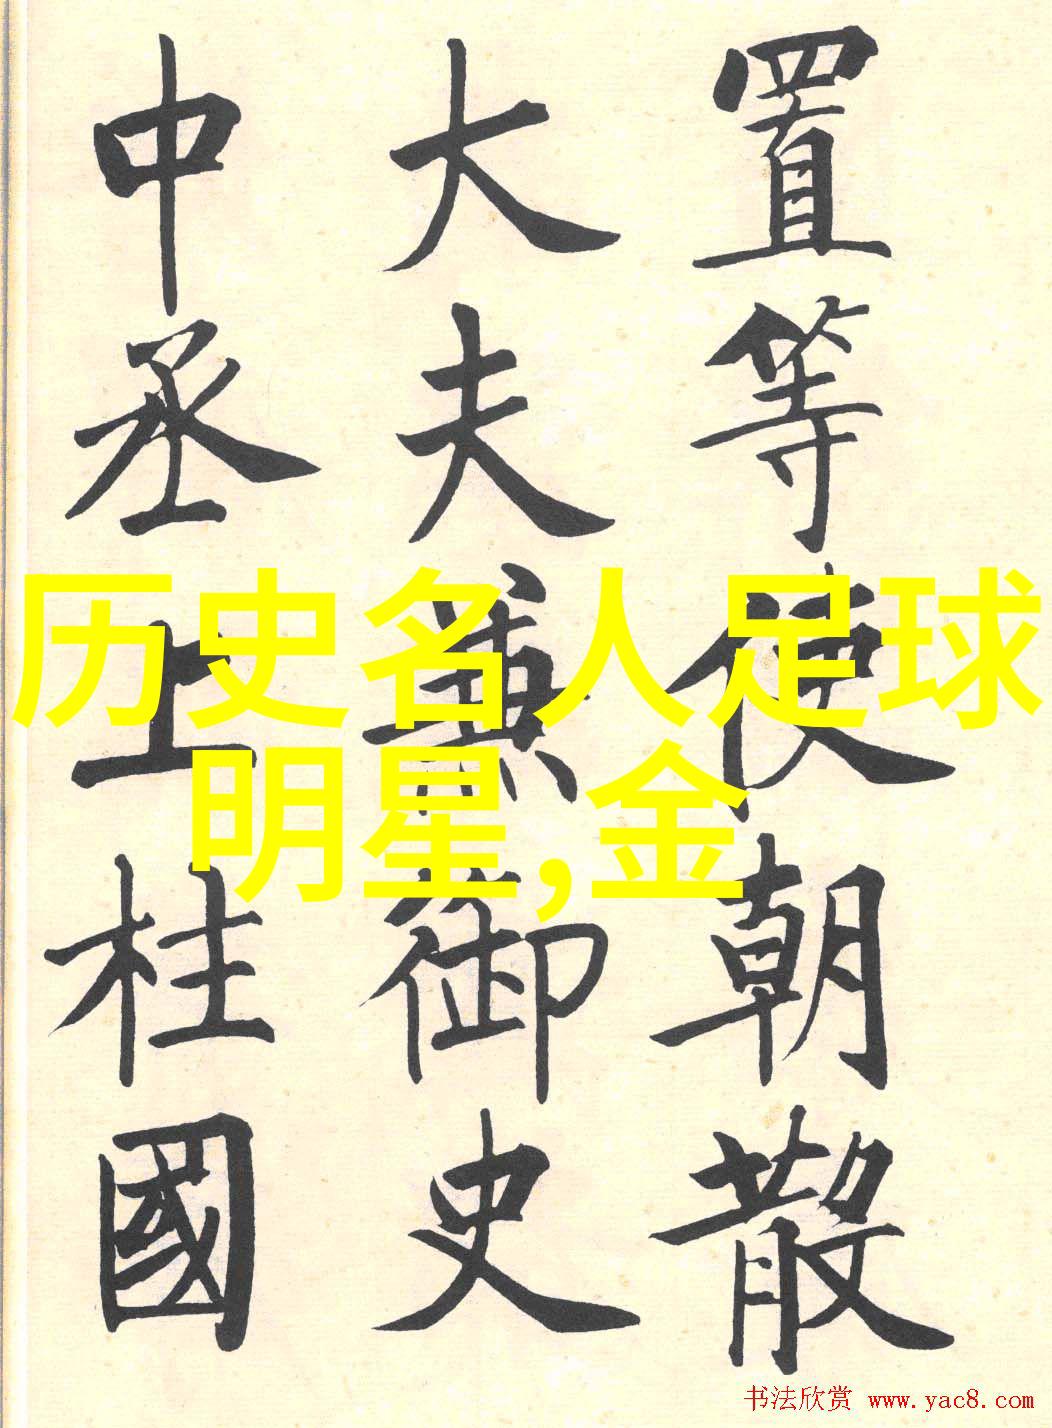 置等使朝散
大夫兼御史
中丞上柱國
历史名人足球
明星,金
书法欣赏 www.yac8.com